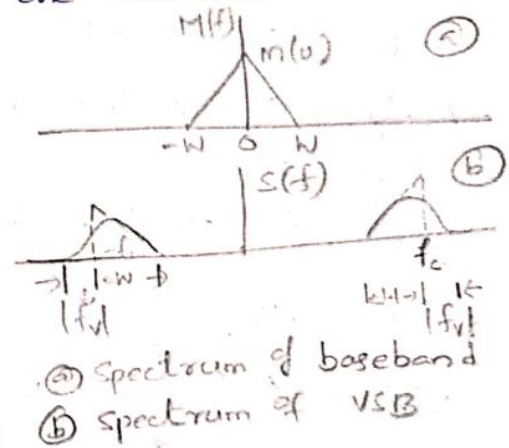 M(f)
m(0)
a
-W 0 W
b
S(f)
fc
W
|fv|
|fv|
a spectrum of baseband
b spectrum of VSB